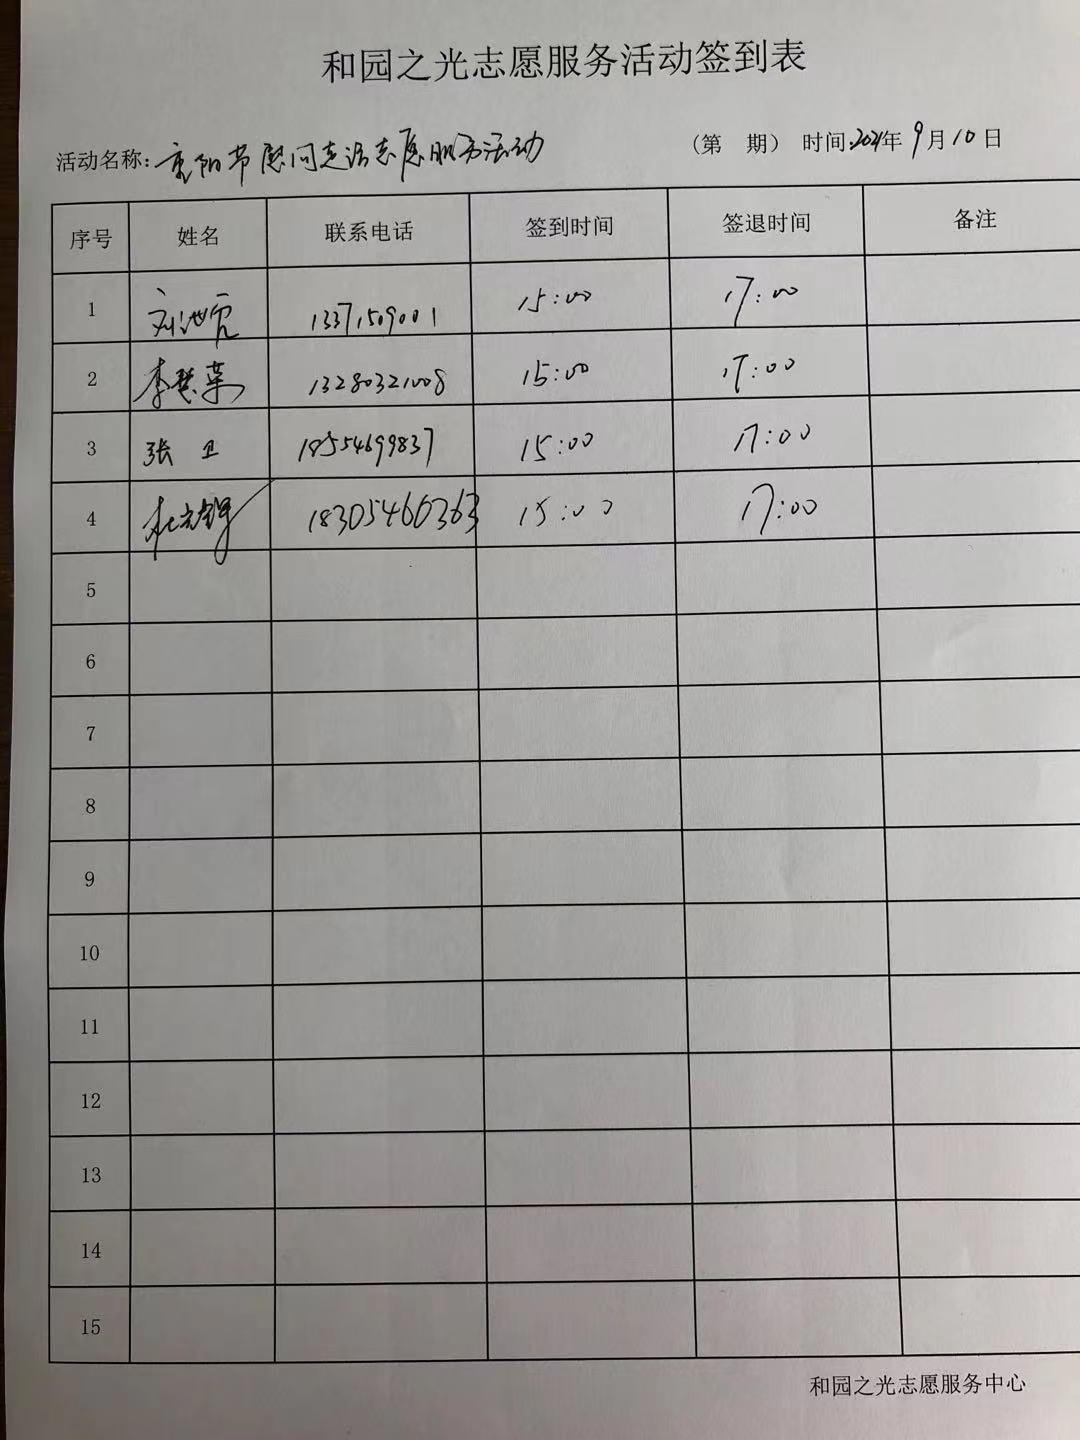 和园之光志愿服务活动签到表
活动名称:重阳节慰问走访志愿服务活动 (第 期) 时间:2021年9月10日
序号 姓名 联系电话 签到时间 签退时间 备注
1 刘 13371509001 15:00 17:00
2 李慧荣 13280321008 15:00 17:00
3 张卫 18554699837 15:00 17:00
4 杜 18305460363 15:00 17:00
5
6
7
8
9
10
11
12
13
14
15
和园之光志愿服务中心